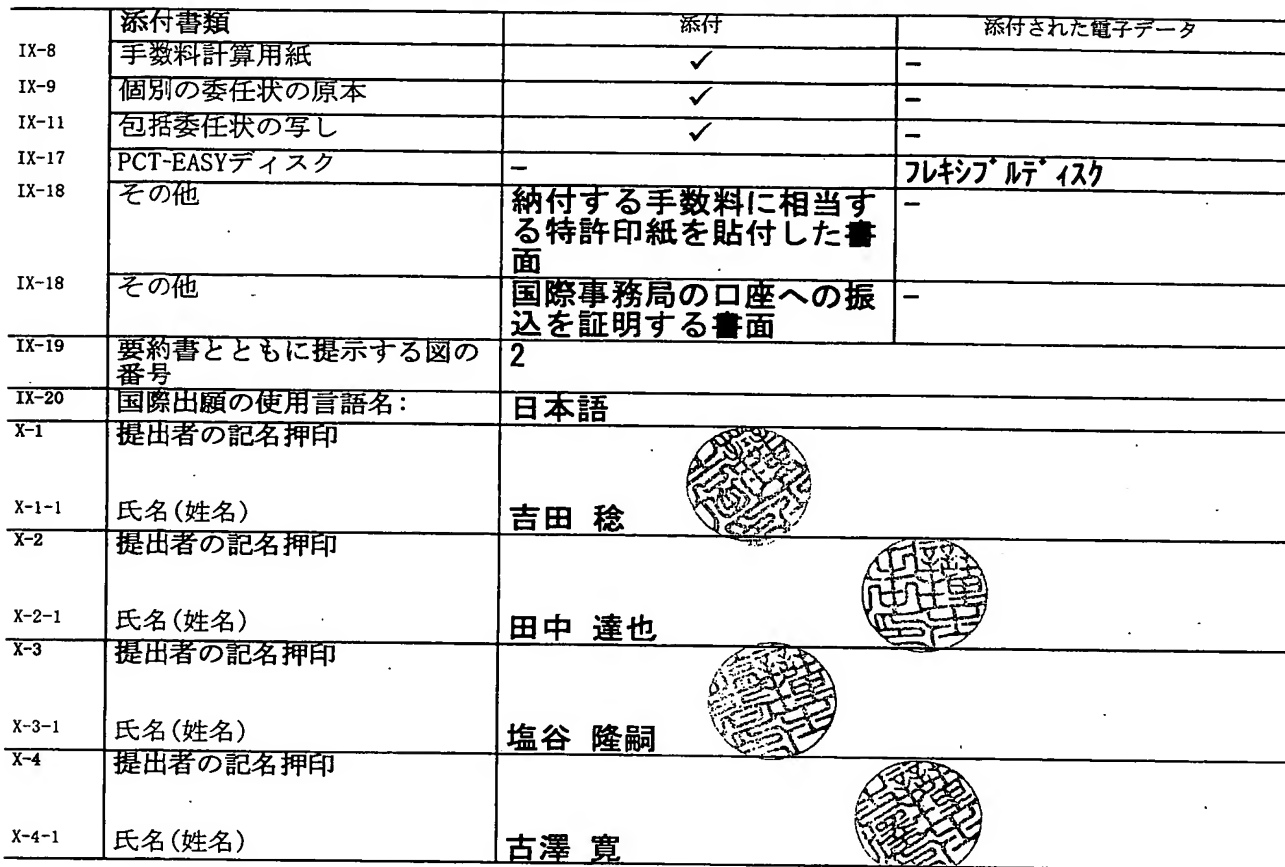 添付書類 添付 添付された電子データ
IX-8 手数料計算用紙 ✓ -
IX-9 個別の委任状の原本 ✓ -
IX-11 包括委任状の写し ✓ -
IX-17 PCT-EASYディスク - フレキシブルディスク
IX-18 その他 納付する手数料に相当す -
る特許印紙を貼付した書
面
IX-18 その他 国際事務局の口座への振 -
込を証明する書面
IX-19 要約書とともに提示する図の 2
番号
IX-20 国際出願の使用言語名: 日本語
X-1 提出者の記名押印
X-1-1 氏名(姓名) 吉田 稔
X-2 提出者の記名押印
X-2-1 氏名(姓名) 田中 達也
X-3 提出者の記名押印
X-3-1 氏名(姓名) 塩谷 隆嗣
X-4 提出者の記名押印
X-4-1 氏名(姓名) 古澤 寛